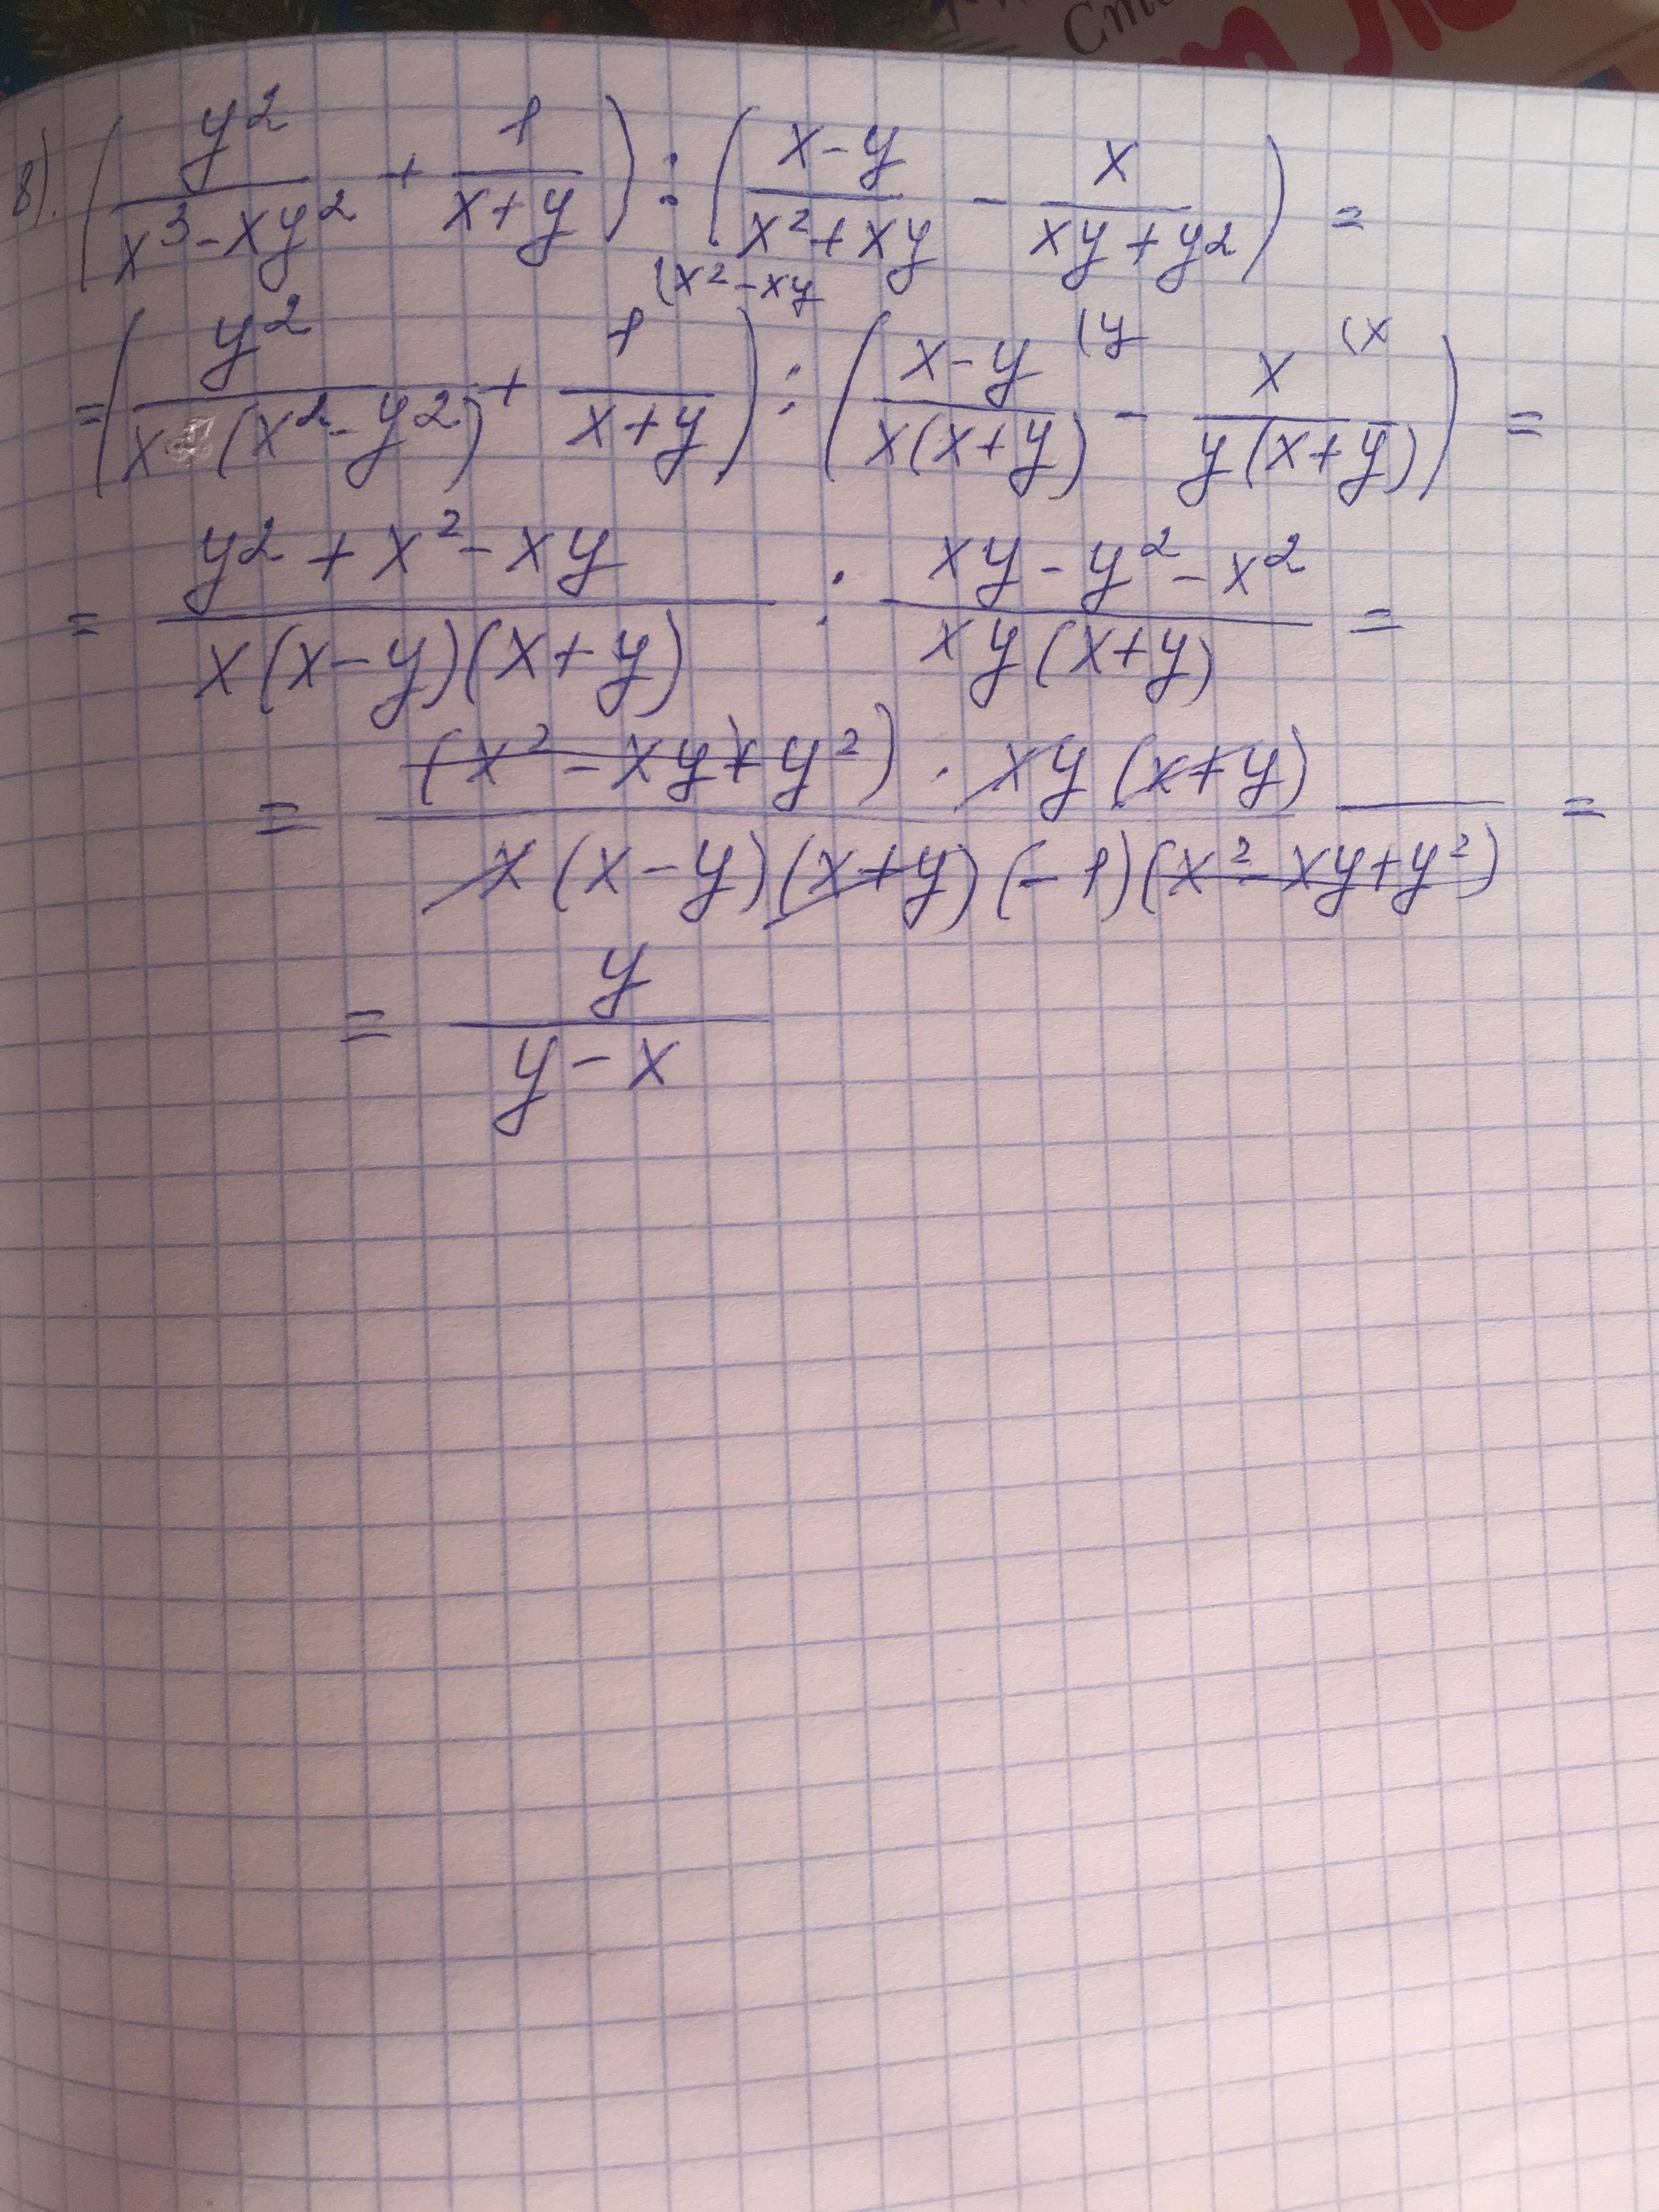 Ст
8). (y²/(x³-xy²) + 1/(x+y)) : ((x-y)/(x²+xy) - x/(xy+y²)) =
= (y²/(x(x²-y²)) + 1/(x+y) (x²-xy) : ((x-y)/(x(x+y)) (y - x/(y(x+y)) (x) =
= (y²+x²-xy)/(x(x-y)(x+y)) : (xy-y²-x²)/(xy(x+y)) =
= ((x²-xy+y²) · xy(x+y))/(x(x-y)(x+y)(-1)(x²-xy+y²)) =
= y/(y-x)